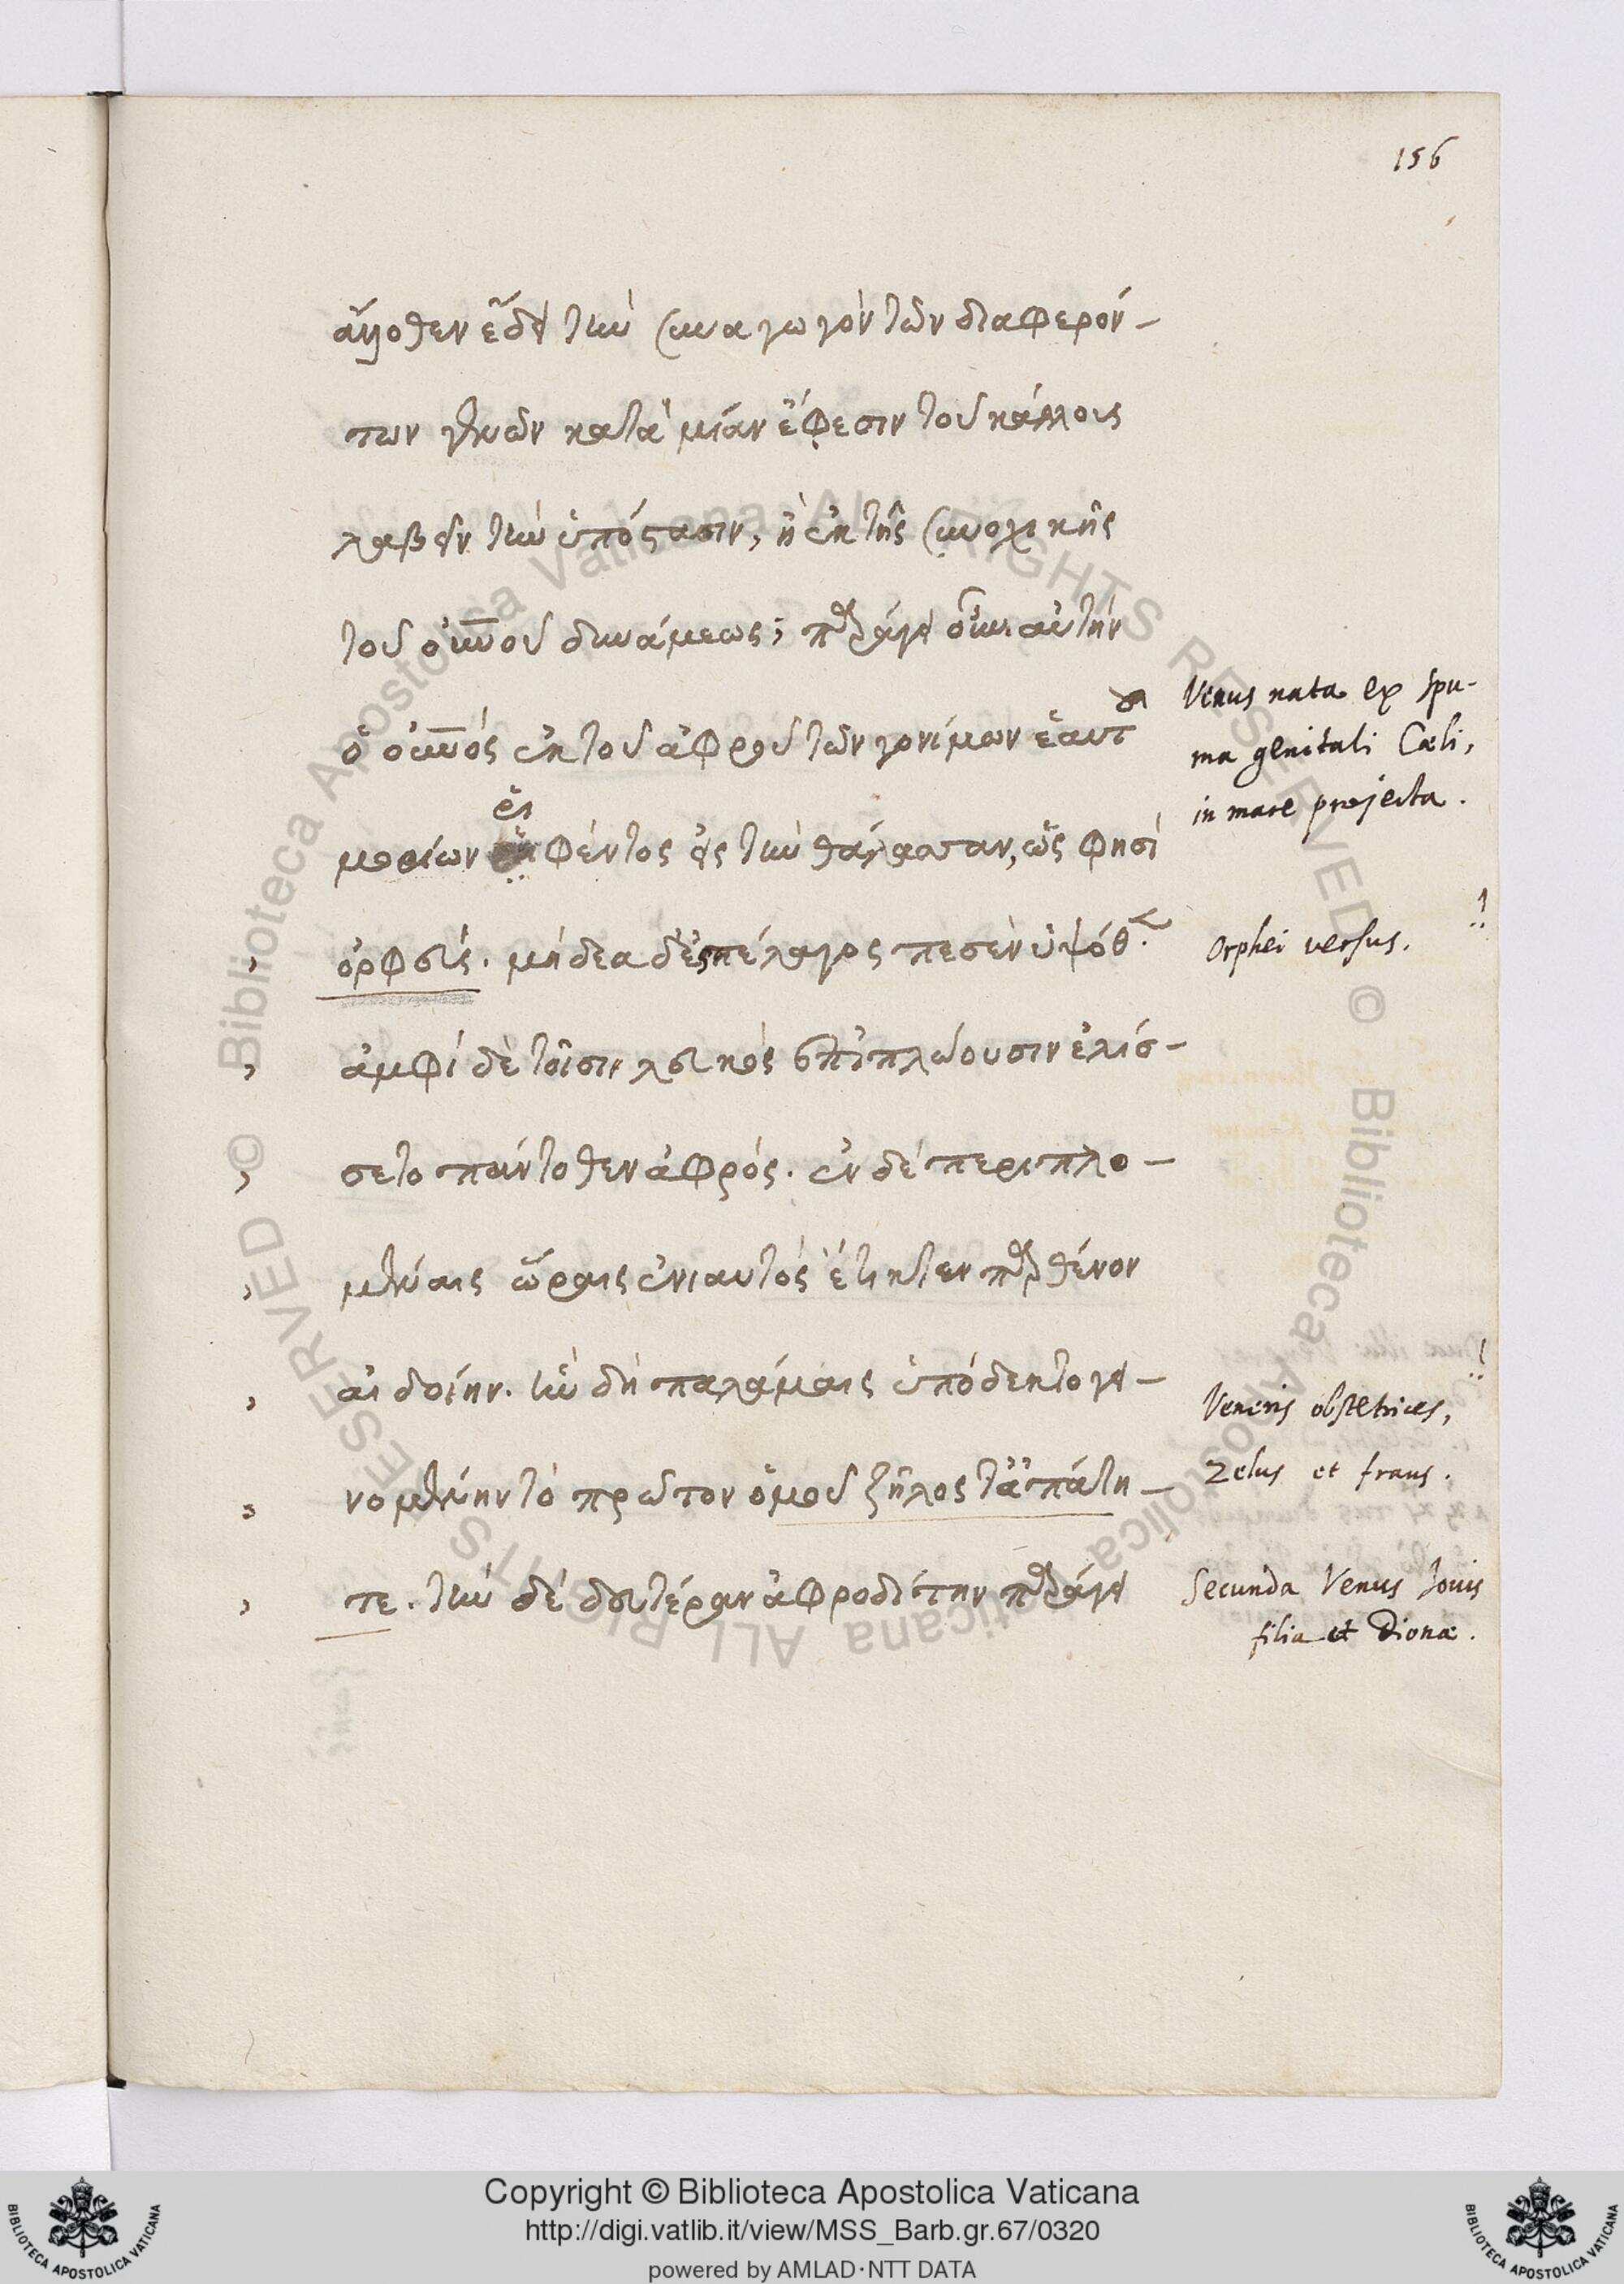 156
ἄλλοθεν ἔδει τὴν συναγωγὸν τῶν διαφερόν-
των γενῶν κατὰ μίαν ἔφεσιν τοῦ κάλλους
λαβεῖν τὴν ὑπόστασιν, ἢ ἐκ τῆς συνοχικῆς
τοῦ οὐνοῦ δυνάμεως; παράγει οὖν αὐτὴν
ὁ οὐνὸς ἐκ τοῦ ἀφροῦ τῶν γονίμων ἑαυτοῦ
μορίων ῥιφέντος εἰς τὴν θάλασσαν, ὥς φησὶ
ὀρφεύς. μήδεα δ' ἐς πέλαγος πέσεν ὑψόθ.
ἀμφὶ δὲ τοῖσιν λευκὸς ἐπιπλώουσιν ἑλίσ-
σετο πάντοθεν ἀφρός. ἐν δὲ περιπλο-
μέναις ὥραις ἐνιαυτὸς ἔτικτεν παρθένον
αἰδοίην. ἣν δὴ παλάμαις ὑπόδεκτο γει-
νομένην τὸ πρῶτον ὁμοῦ ζῆλός τ' ἀπάτη-
τε. τὴν δὲ δευτέραν ἀφροδίτην παράγει
Venus nata ex spu-
ma genitali Cœli,
in mare projecta.
Orphei versus.
Veneris obstetrices,
Zelus et fraus.
Secunda Venus Jovis
filia et Dionæ.
Copyright © Biblioteca Apostolica Vaticana
http://digi.vatlib.it/view/MSS_Barb.gr.67/0320
powered by AMLAD·NTT DATA